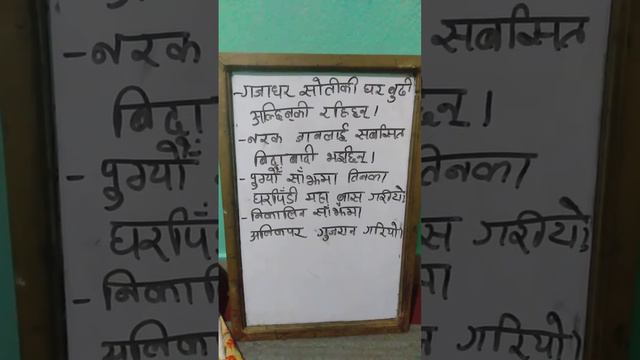 - गजाधर सोतीकी घर बुढी
अलिछिनकी रहिछन् ।
- नरक जानलाई सबसित
बिदा बादी भइछिन् ।
- पुग्यौँ साँझमा तिनका
घरपिँडी महा बास गरीयो
- निकालिन साँझमा
अलिनपर गुजरान गरियो।